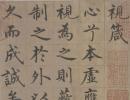 視箴
心兮本虛應
視為之則蔽
制之於外以
久而成誠